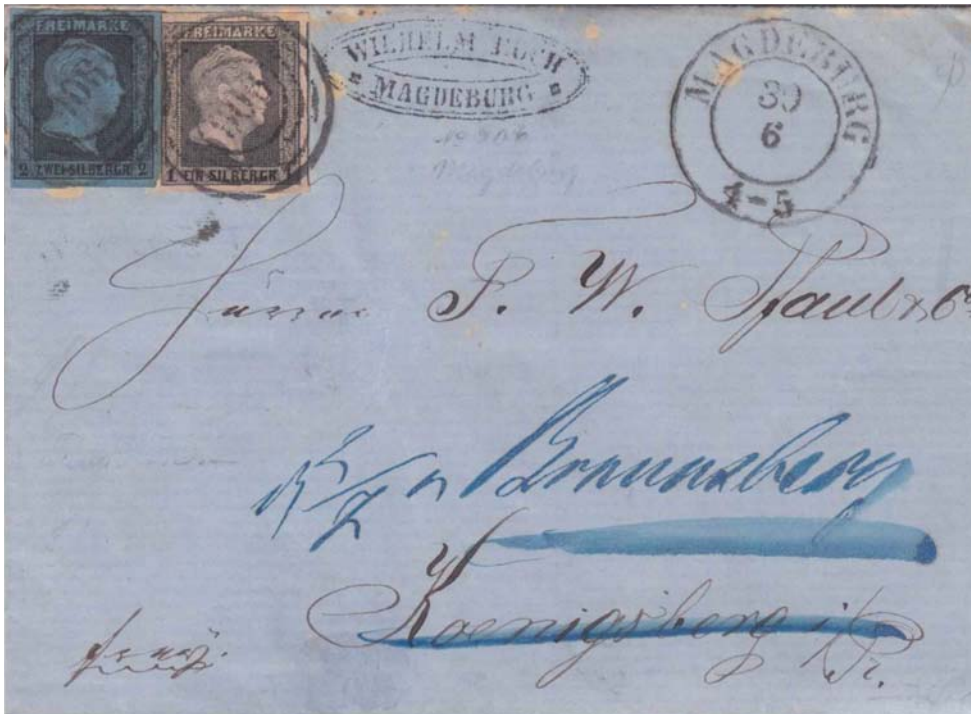 FREIMARKE
2 ZWEI-SILBERGR. 2
FREIMARKE
1 EIN SILBERGR. 1
WILHELM
MAGDEBURG
MAGDEBURG
30
6
4-5
Magdeburg
Herrn P. W. Pfaul & Co
Braunsberg
Koenigsberg i/Pr.
franco.